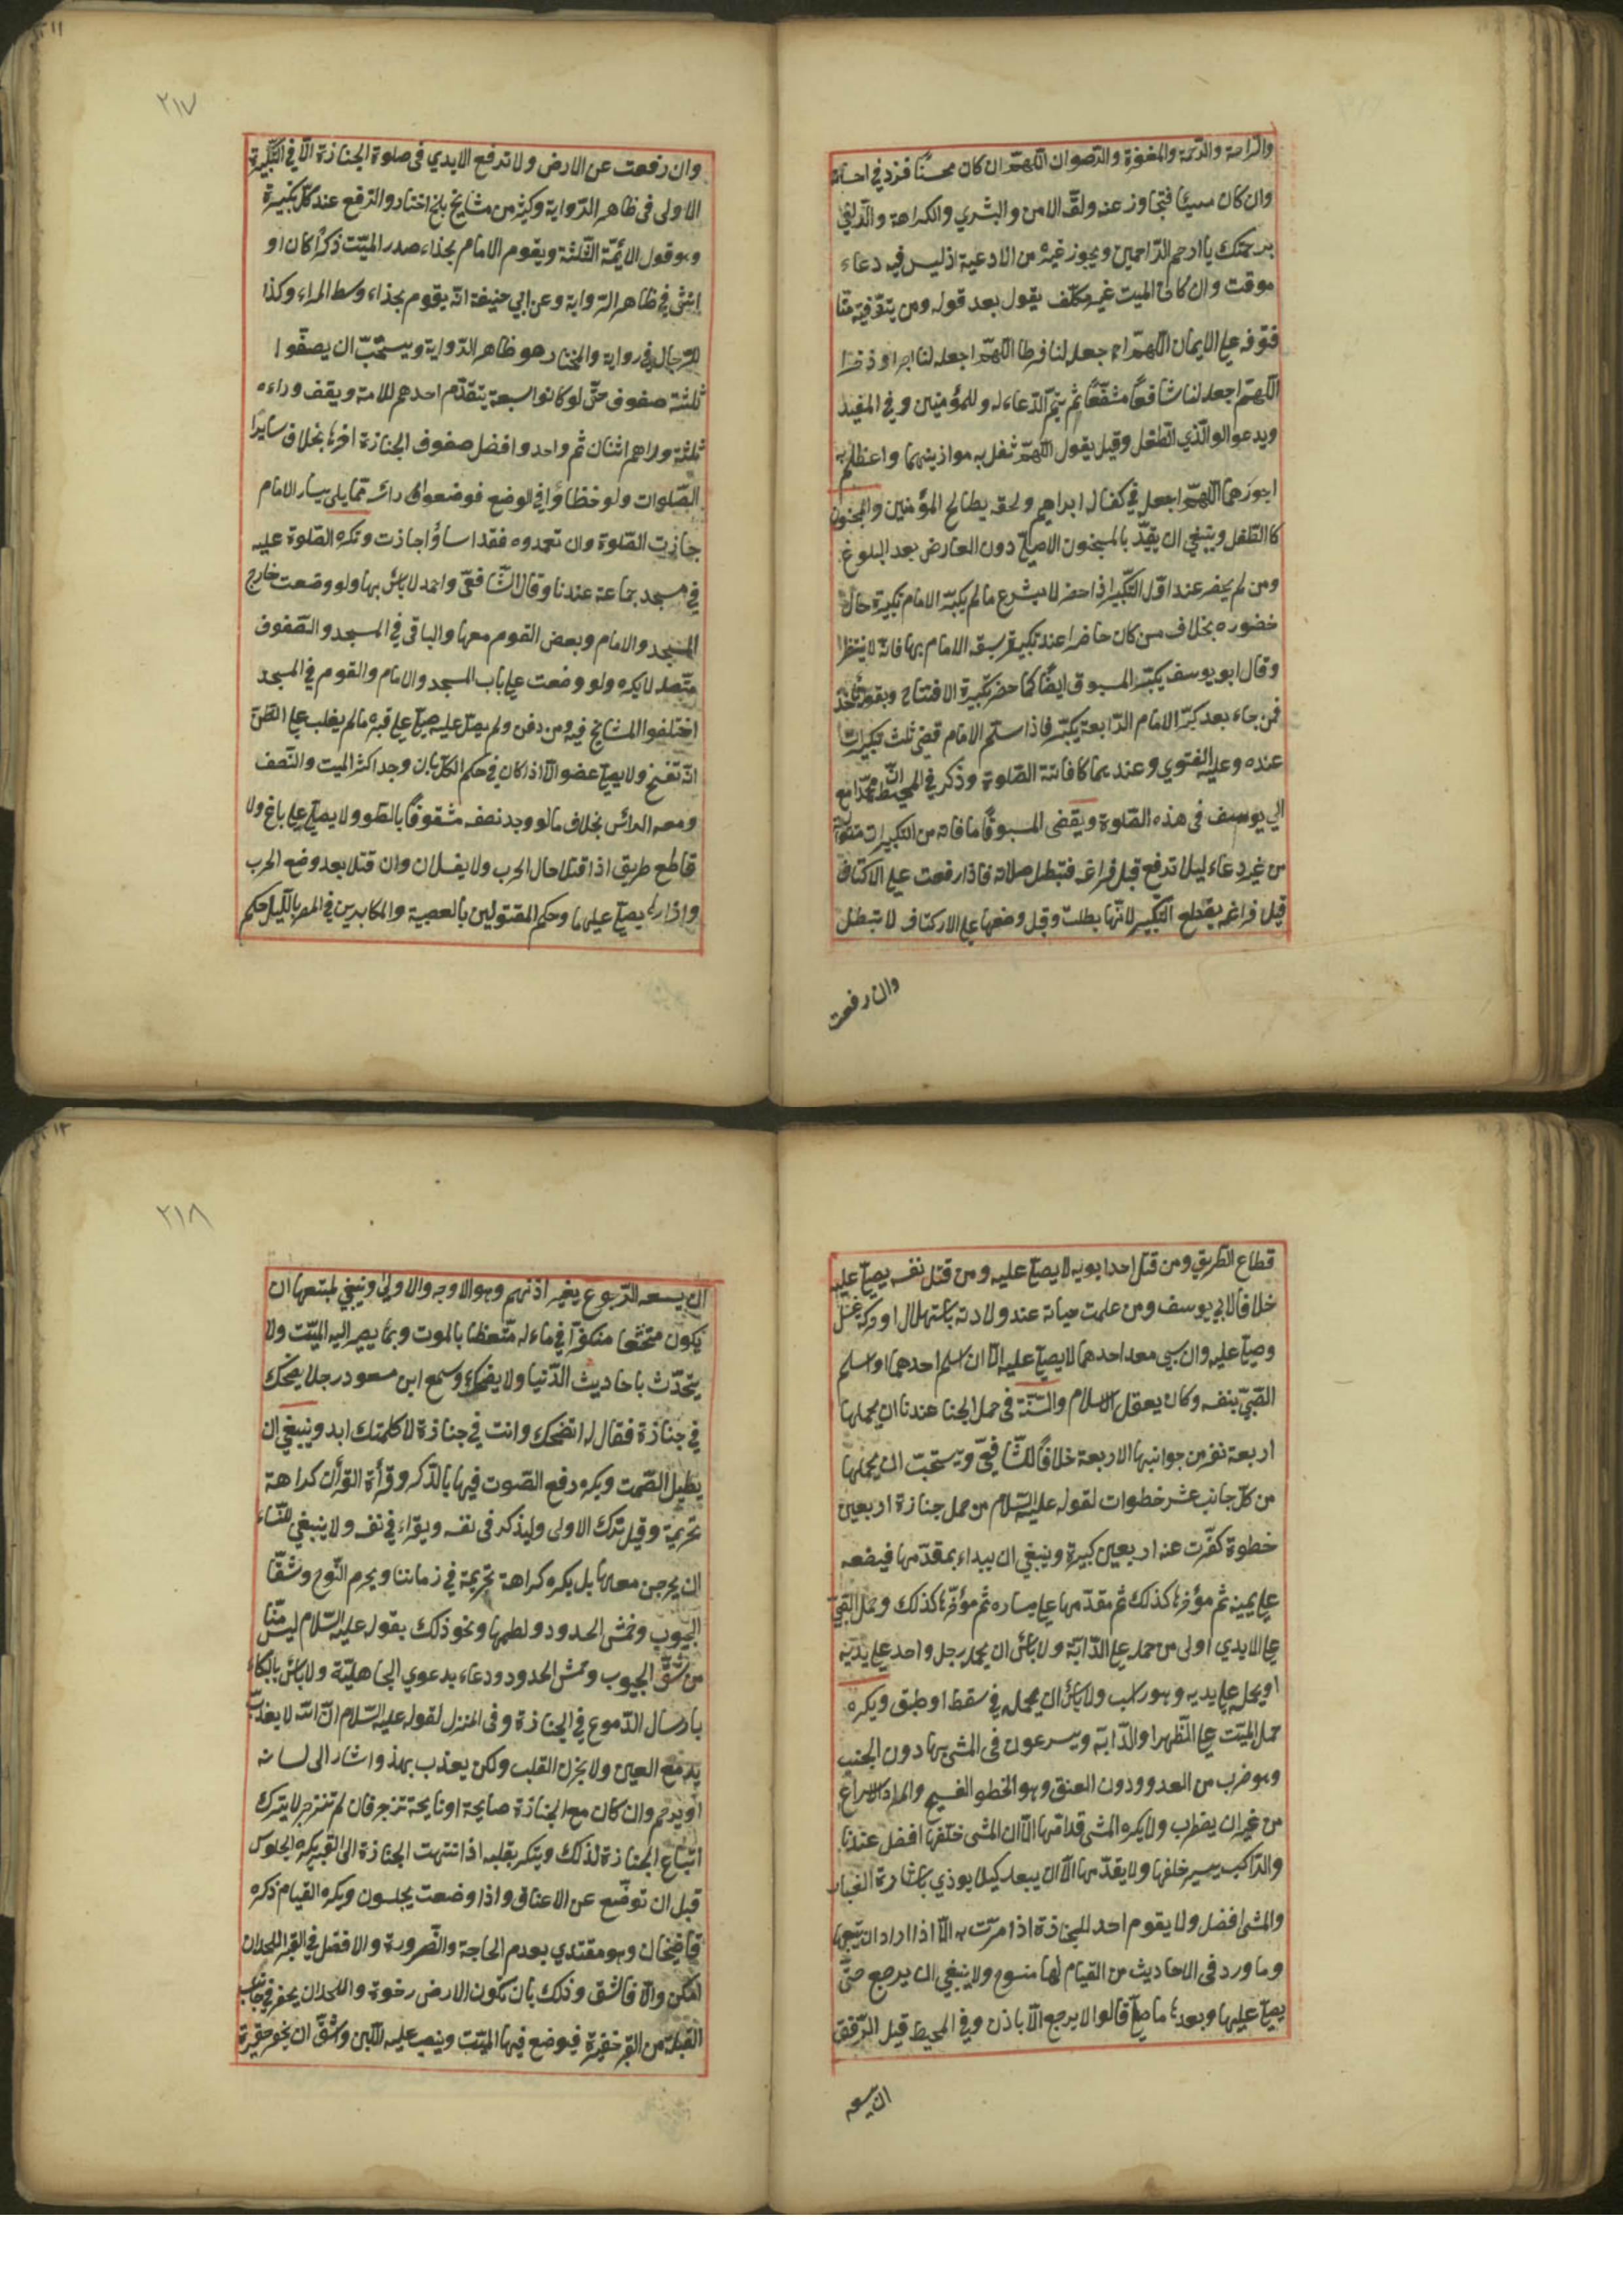 والراحة والرحمة والمغفرة والرضوان اللهم ان كان محسنا فزد في احسانه
وان كان مسيئا فتجاوز عنه ولقّه الامن والبشري والكرامة والزلفي
برحمتك يا ارحم الراحمين ويجوز غيره من الادعية اذ ليس فيه دعاء
موقت وان كان الميت غير مكلّف يقول بعد قوله ومن يتوفيته منّا
فتوفه علي الايمان اللهم اجعله لنا فرطا اللهم اجعله لنا اجرا وذخرا
اللهم اجعله لنا شافعًا مشفّعًا ثم يتم الدعاء له وللمؤمنين وفي المفيد
ويدعو الوالذي الطفل وقيل يقول اللهم ثقل به موازينهما واعظم به
اجورهما اللهم اجعل في كفال ابراهيم ولحقه بصالح المؤمنين والمجنون
كالطفل وينبغي ان يقيّد بالمجنون الاصلي دون العارض بعد البلوغ
ومن لم يحضر عند اوّل التكبير اذا حضر لا يشرع ما لم يكبّر الامام تكبيرة حال
حضوره بخلاف من كان حاضرا عند تكبيرة سبقه الامام بها فانه لا ينتظر
وقال ابو يوسف يكبّر المسبوق ايضًا كما حضر تكبيرة الافتتاح وبقوله نأخذ
فمن جاء بعد كبّر الامام الرابعة يكبّر فاذا سلّم الامام قضي ثلث تكبيرات
عنده وعليه الفتوي وعندهما كا فاتته الصّلوة وذكر في المحيط انّ محمّدا مع
ابي يوسف في هذه الصّلوة ويقضي المسبوق ما فاته من التكبيرات متواليا
من غير دعاء ليلا ترفع قبل فراغه فتبطل صلاته فاذا رفعت علي الاكتاف
قبل فراغه يقطع التكبير لانّها بطلت وقبل وضعها علي الاركتاف لا تبطل
وان رفعت
٢١٧
وان رفعت عن الارض ولا ترفع الايدي في صلوة الجنازة الّا في التكبيرة
الاولى في ظاهر الرّواية وكثير من مشايخ بلخ اختاروا الرّفع عند كلّ تكبيرة
وهو قول الائمّة الثّلثة ويقوم الامام بحذاء صدر الميّت ذكرًا كان او
انثي في ظاهر الرواية وعن ابي حنيفة انّه يقوم بحذاء وسط المراء وكذا
للرجال في رواية والمختار هو ظاهر الرّواية ويستحبّ ان يصفّوا
ثلثة صفوف حتّي لو كانوا سبعة يتقدّم احدهم للامة ويقف وراءه
ثلثة وراهم اثنان ثم واحد وافضل صفوف الجنازة اخرها بخلاف سايرا
الصّلوات ولو خظاؤا في الوضع فوضعوا رائسه ممّا يلي يسار الامام
جازت الصّلوة وان تعمدوه فقد اساؤا جازت وتكره الصّلوة عليه
في مسجد جماعة عندنا وقال الشّافعيّ واحمد لا بائس بها ولو وضعت خارج
المسجد والامام وبعض القوم معها والباقي في المسجد والصّفوف
متّصلة لا يكره ولو وضعت علي باب المسجد والامام والقوم في المسجد
اختلفوا المشايخ فيه ومن دفن ولم يصلّ عليه صلّي علي قبره ما لم يغلب علي الظنّ
انّه تفسخ ولا يصلّي عضو الّا اذا كان في حكم الكلّ بان وجد اكثر الميت والنّصف
ومعه الرائس بخلاف ما لو وجد نصفه مشقوقًا بالطّول ولا يصلّي علي باغ ولا
قاطع طريق اذا قتلا حال الحرب ولا يغسلان وان قتلا بعد وضع الحرب
واذارها يصلّي عليهما وحكم المقتولين بالعصبية والمكابرين في المصر بالليل حكم
قطاع الطريق ومن قتل احد ابويه لا يصلّي عليه ومن قتل نفسه يصلّي عليه
خلافا لابي يوسف ومن علمت حياته عند ولادته باستهلال او حركة غسّل
وصلّي عليه وان سبي معه احدهما لا يصلّي عليه الّا ان اسلم احدهما او اسلم
الصّبيّ بنفسه وكان يعقل الاسلام والسّنّة في حمل الجنا عندنا ان يحملها
اربعة نفر من جوانبها الاربعة خلافًا للشّافعيّ ويستحبّ ان يحملها
من كلّ جانب عشر خطوات لقوله عليه السّلام من حمل جنازة اربعين
خطوة كفّرت عنه اربعين كبيرة وينبغي ان يبداء بمقدّمها فيضعه
علي يمينه ثم مؤخرها كذلك ثم مقدّمها علي يساره ثم مؤخّرها كذلك وحمل الصّبيّ
علي الايدي اولى من حمله علي الدّابّة ولا بائس ان يحمله رجل واحد علي يديه
او يحمله علي يديه وهو راكب ولا بائس ان يحمله في سقط او طبق ويكره
حمل الميّت علي الظّهر او الدّابّة ويسرعون في المشي بها دون الجنب
وهو ضرب من العدو ودون العنق وهو الخطو الفسيح والمراد الاسراع
من غير ان يضطرب ولا يكره المشي قدامها الّا ان المشي خلفها افضل عندنا
والرّاكب يسير خلفها ولا يقدّمها الّا ان يبعد كيلا يوذي باشارة الغبار
والمشي افضل ولا يقوم احد للجنازة اذا مرّت به الّا اذا اراد ان يتبعها
وما ورد في الاحاديث من القيام لها منسوخ ولا ينبغي ان يرجع حتّي
يصلّي عليها وبعد ما صلّي قالوا لا يرجع الّا باذن وفي المحيط قيل الرّفق
ان يسعه
٢١٨
ان يسعه الرّجوع بغير اذنهم وهو الاوجه والاولى وينبغي لمتبعها ان
يكون متخشّعا متفكّرا في ماءله متّعظا بالموت وبما يصير اليه الميّت ولا
يتحدّث باحاديث الدّنيا ولا يضحك وسمع ابن مسعود رجلا يضحك
في جنازة فقال له اتضحك وانت في جنازة لا كلمتك ابد وينبغي ان
يطيل الصّمت ويكره رفع الصّوت فيها بالذّكر وقرأة القرأن كراهة
تحريمة وقيل ترك الاولى وليذكر في نفسه ويقراء في نفسه ولا ينبغي للنّساء
ان يخرجن معها بل يكره كراهة تحريمة في زماننا ويحرم النّوح وشقّا
الجيوب وخمش الحدود ولطمها ونحو ذلك بقوله عليه السّلام ليس منّا
من شقّ الجيوب وخمش الحدود ودعاء بدعوي الجاهليّة ولا بائس بالبكاء
بارسال الدّموع في الجنازة وفي المنزل لقوله عليه السّلام انّ الله لا يعذّب
بدمع العين ولا بحزن القلب ولكن يعذب بهذ واشار الى لسانه
او يرحم وان كان مع الجنازة صايحة او نايحة تزجر فان لم تنزجر لا يترك
اتّباع الجنازة لذلك وينكر بقلبه اذا انتهت الجنازة الى القبر يكره الجلوس
قبل ان توضّع عن الاعناق واذا وضعت يجلسون ويكره القيام ذكره
قاضيخان وهو مقتدي بعدم الحاجة والضّرورة والافضل في القبر اللحد ان
امكن والّا فالشّق وذلك بان تكون الارض رخوة واللحد ان يحفر في جانب
القبلة من القبر حفيرة فيوضع فيها الميّت وينصب عليه اللّبن والشقّ ان يحفر حفيرة